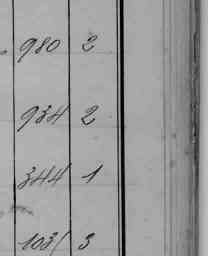 980 2
934 2
344 1
103( 3